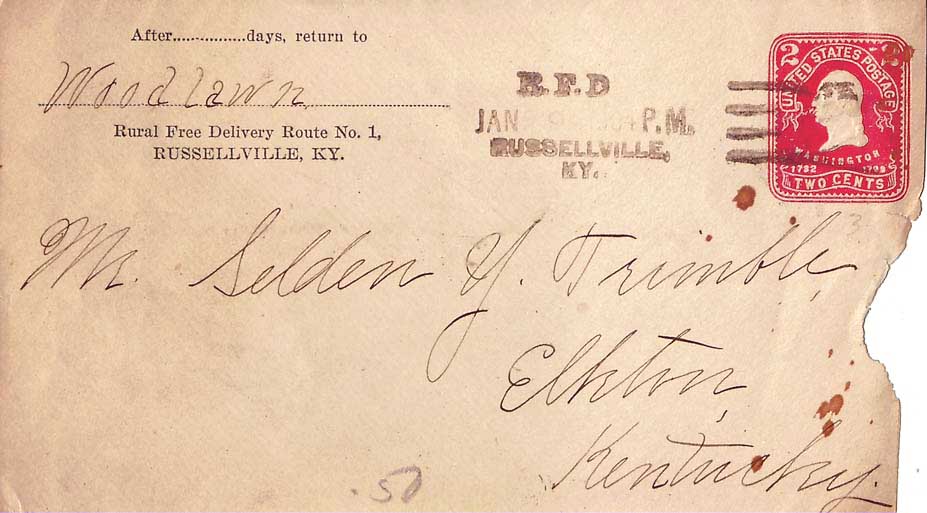 After................days, return to
Woodlawn
Rural Free Delivery Route No. 1,
RUSSELLVILLE, KY.
R.F.D
JAN P.M.
RUSSELLVILLE,
KY.
2 2
UNITED STATES POSTAGE
WASHINGTON
1732 1799
TWO CENTS
Mr. Selden Y. Trimble,
Elkton,
Kentucky.
.50